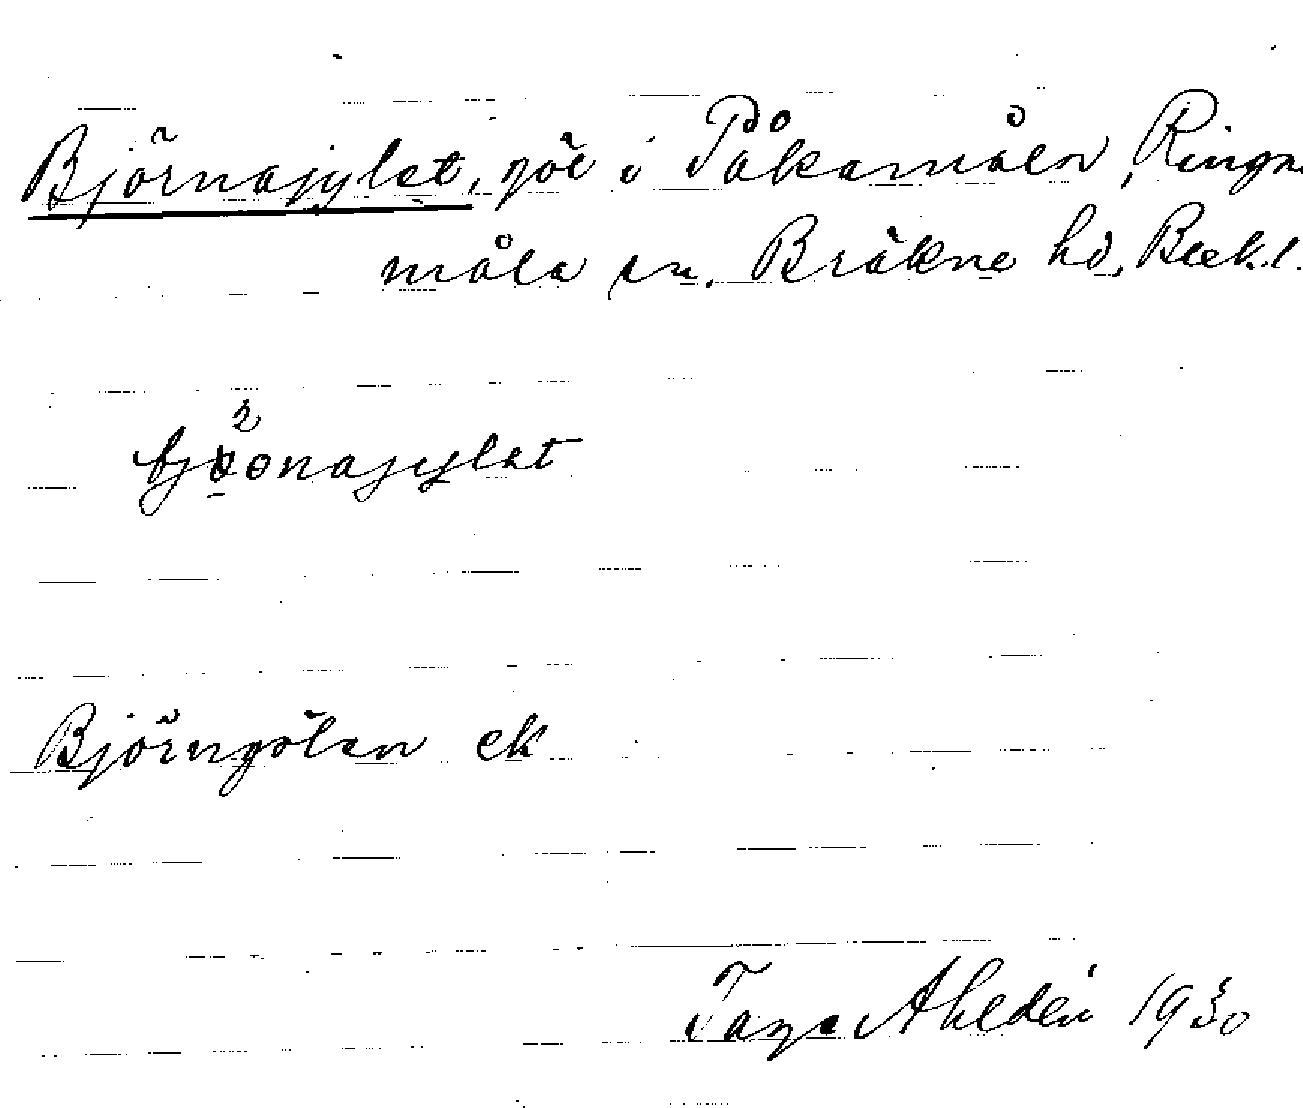 Björnajylet, göl i Påkamåln, Ringa-
måla sn. Bräkne hd, Blek.l.
Björngölen ek
Tage Ahldén 1930